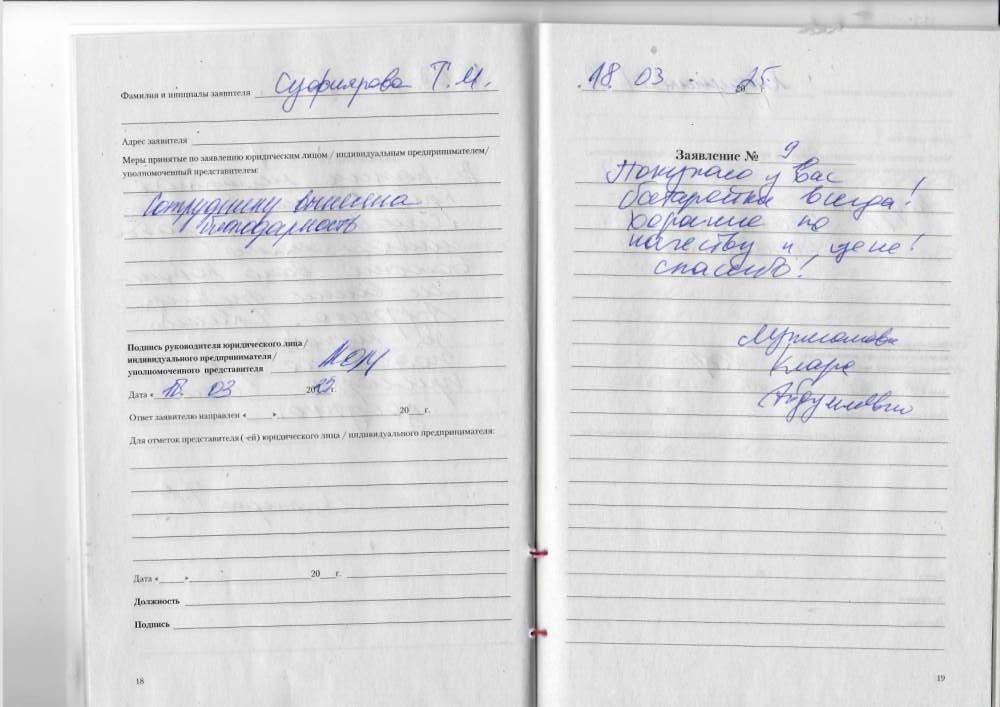 Фамилия и инициалы заявителя Суфиярова Т.М.
Адрес заявителя
Меры принятые по заявлению юридическим лицом / индивидуальным предпринимателем/
уполномоченный представителем:
Сотруднику вынесена
благодарность
Подпись руководителя юридического лица /
индивидуального предпринимателя /
уполномоченного представителя
Дата « 18. 03 2025г.
Ответ заявителю направлен « » 20 г.
Для отметок представителя(-ей) юридического лица / индивидуального предпринимателя:
Дата « » 20 г.
Должность
Подпись
18
18. 03 25.
Заявление № 9
Покупаю у Вас
батарейки всегда!
хорошие по
качеству и цене!
спасибо!
Клара
19